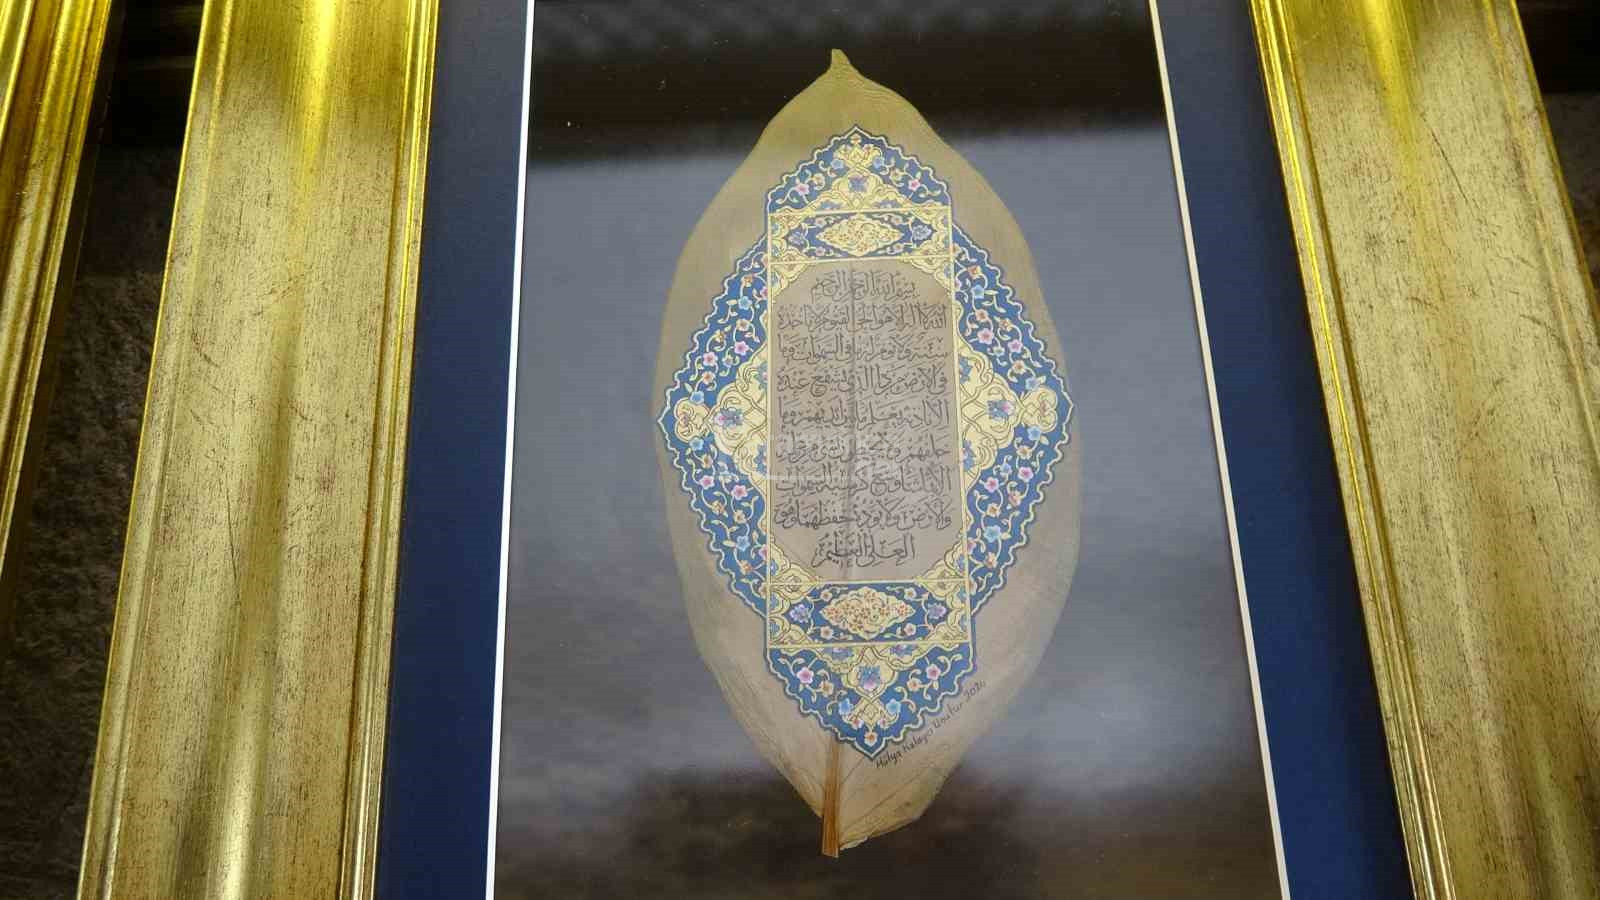 بسم الله الرحمن الرحيم
الله لا اله الا هو الحي القيوم لا تاخذه
سنة ولا نوم له ما في السموات وما
في الارض من ذا الذي يشفع عنده
الا باذنه يعلم ما بين ايديهم وما
خلفهم ولا يحيطون بشئ من علمه
الا بما شاء وسع كرسيه السموات
والارض ولا يؤده حفظهما وهو
العلي العظيم
Hülya Kalaycı 2024